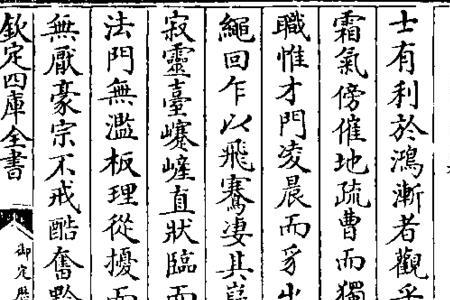 士有利於鴻漸者觀
霜氣傍催地疏曹而獨
職惟才門凌晨而豸出
繩回乍以飛騫凄其嵩
寂靈臺㠑嵼直狀臨而
法門無濫板理從擾而
無厭豪宗不戒酷奮黔
欽定四庫全書
御定歷